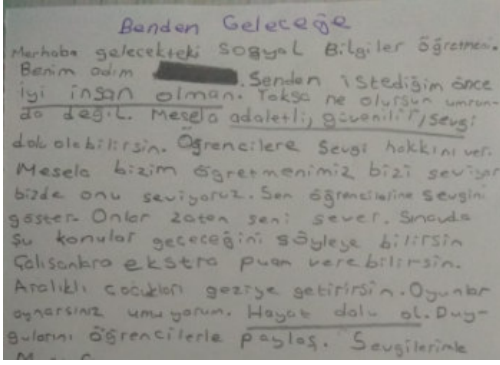 Benden Geleceğe
Merhaba gelecekteki Sosyal Bilgiler öğretmeni.
Benim adım . Senden istediğim önce
iyi insan olman. Yoksa ne olursun umrum-
da değil. Mesela adaletli, güvenilir, sevgi
dolu olabilirsin. Öğrencilere Sevgi hakkını ver.
Mesela bizim öğretmenimiz bizi seviyor
bizde onu seviyoruz. Sen öğrencilerine sevgini
göster. Onlar zaten seni sever. Sınavda
şu konular geçeceğini söyleye bilirsin
Çalışanlara ekstra puan vere bilirsin.
Aralıklı çocukları geziye getirirsin. Oyunlar
oynarsınız umuyorum. Hayat dolu ol. Duy-
gularını öğrencilerle paylaş. Sevgilerimle